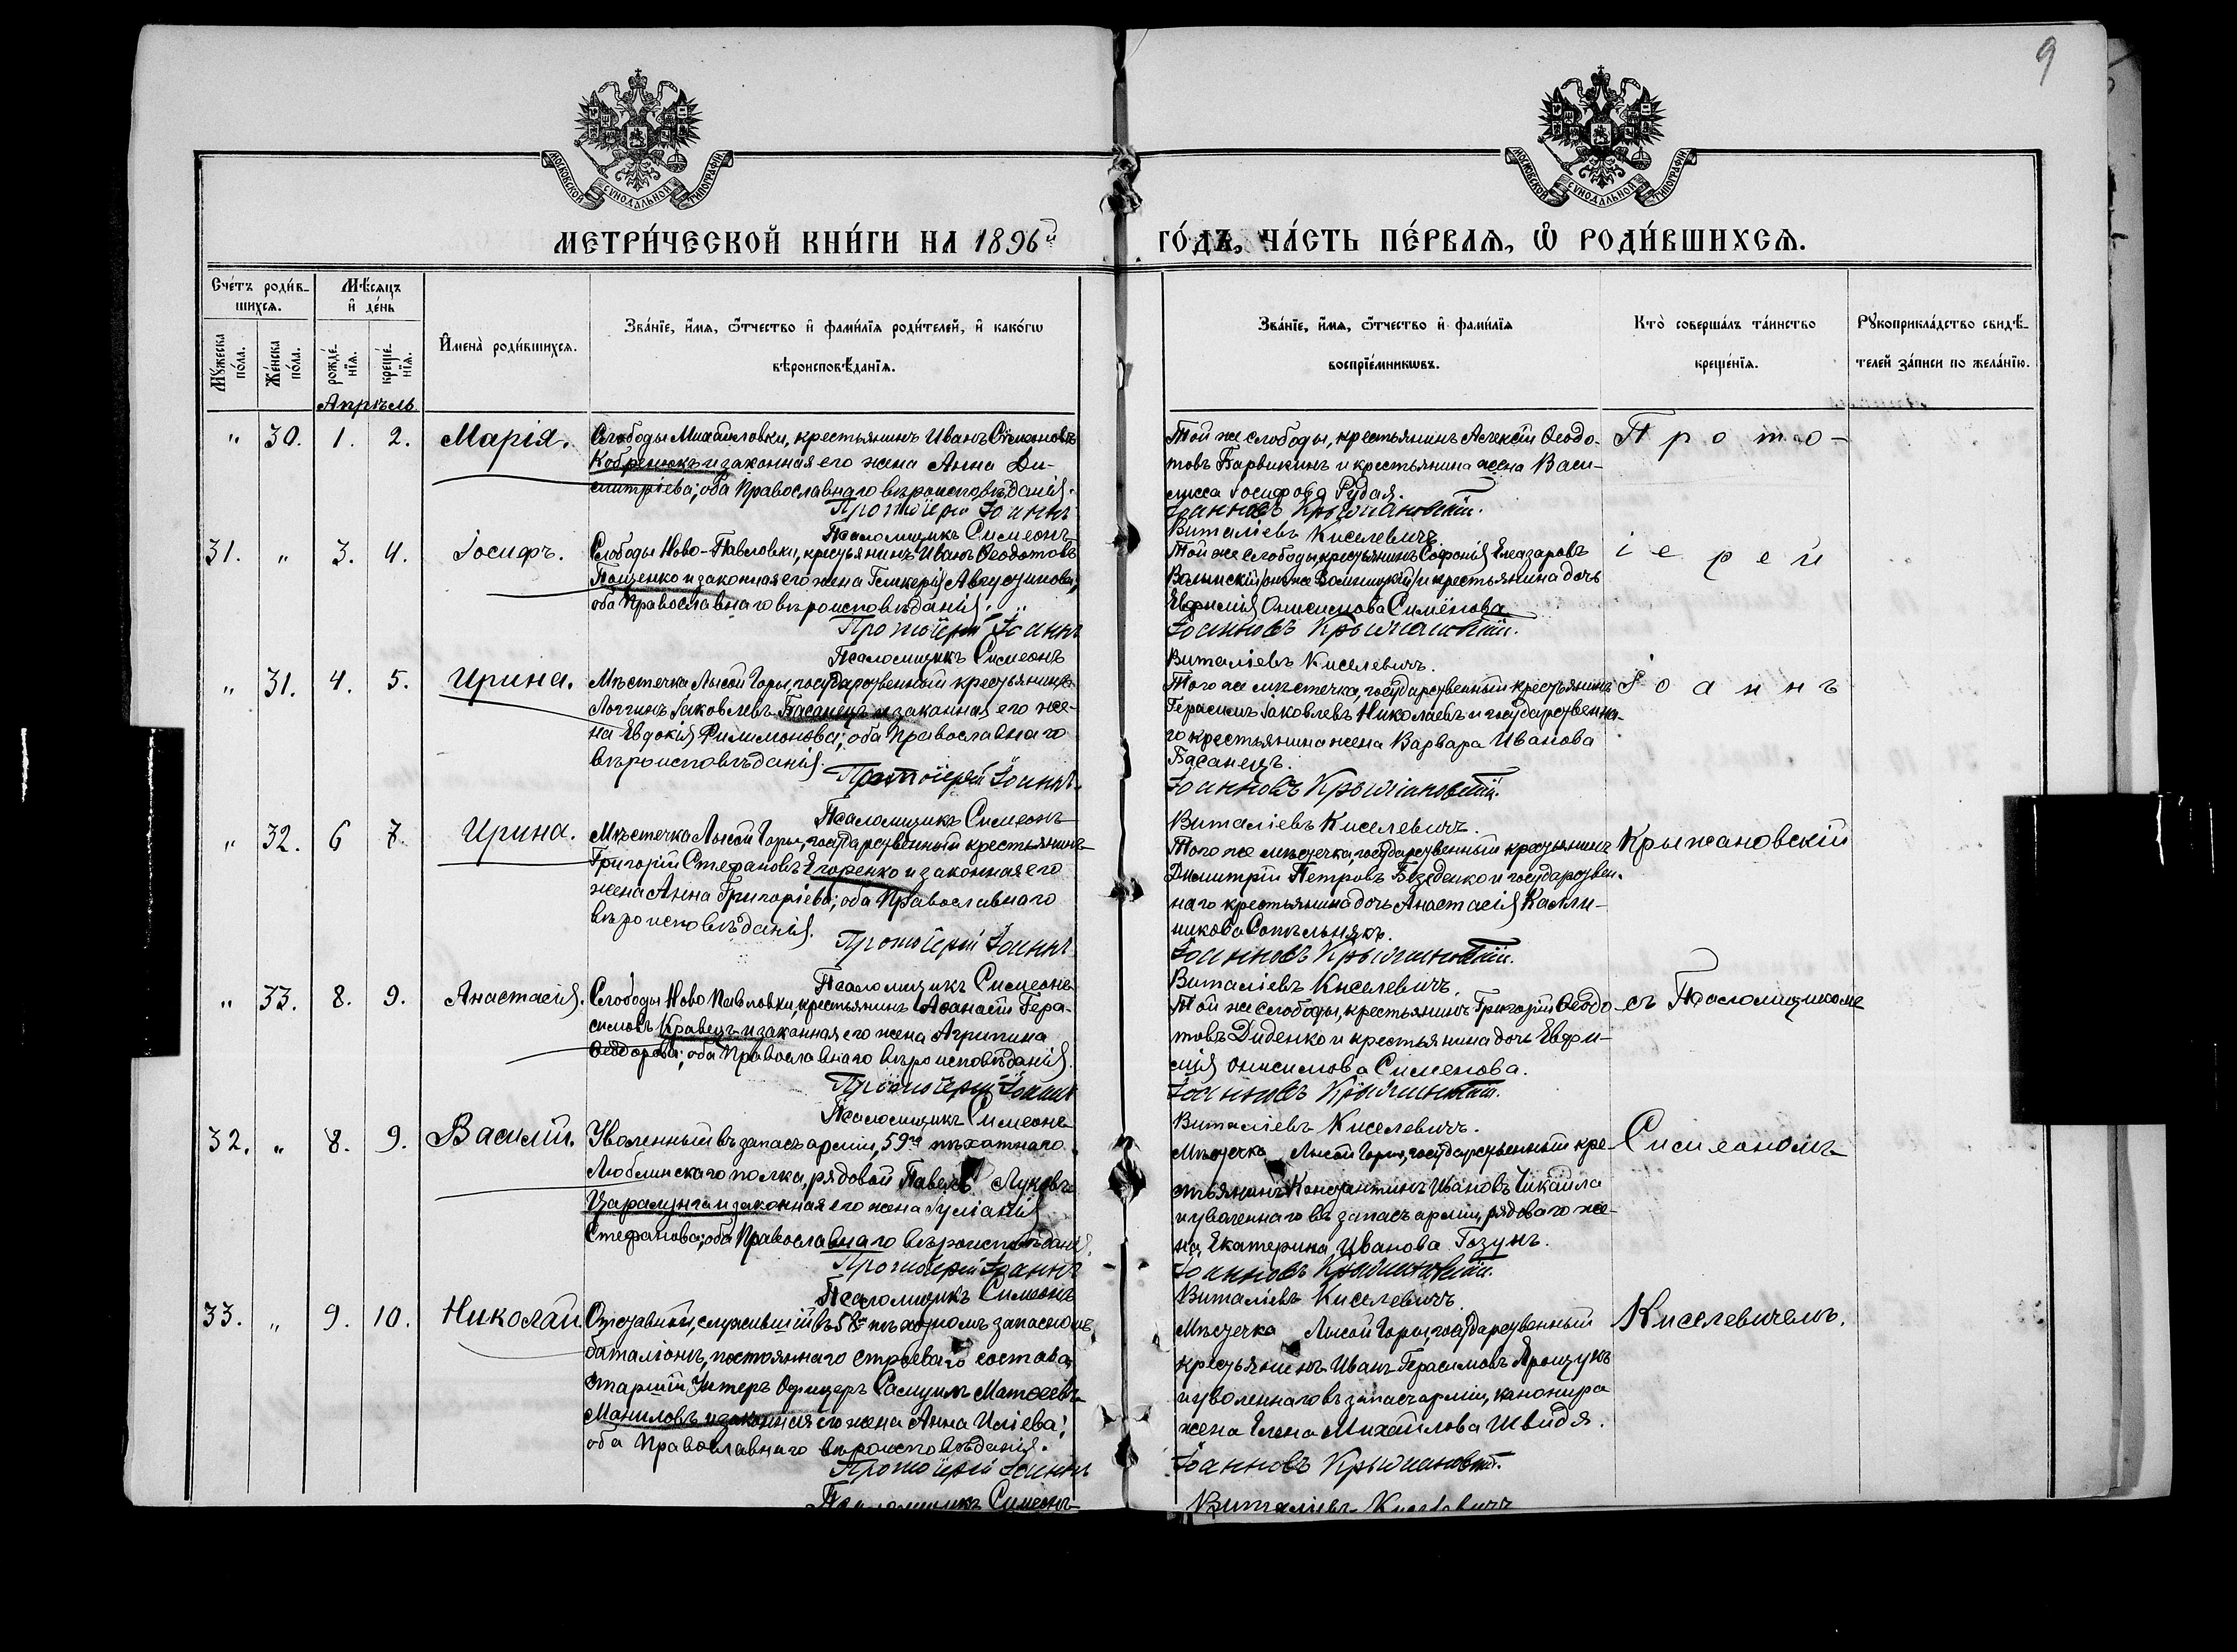 9
МОСКОВСКОЙ СѴНОДАЛЬНОЙ ТИПОГРАФІИ
МОСКОВСКОЙ СѴНОДАЛЬНОЙ ТИПОГРАФІИ
МЕТРИ́ЧЕСКОЙ КНИ́ГИ НА 1896й ГО́ДЪ, ЧА́СТЬ ПЕ́РВАЯ, Ѡ РОДИ́ВШИХСЯ.
Сче́тъ роди́в-
шихся.
Мѣ́сяцъ
и де́нь
Мꙋ́жеска по́ла.
Же́нска по́ла.
рожде́-
нїя.
креще́-
нїя.
И҆мена̀ роди́вшихся.
Зва́нїе, и҆́мя, ѻ҆́тчество и҆ фами́лїя роди́телей, и҆ како́гѡ
вѣроисповѣ́данїя.
Зва́нїе, и҆́мя, ѻ҆́тчество и҆ фами́лїя
воспрїе́мникѡвъ.
Кто̀ соверша́лъ та́инство
креще́нїя.
Рꙋкоприкла́дство свидѣ́-
телей за́писи по жела́нїю.
Апрѣль
" 30. 1. 2. Марія. Слободы Михайловки, крестьянинъ Иванъ Симеоновъ
Кобренюкъ и законная его жена Анна Ди-
митріева; оба Православнаго вѣроисповѣданія.
Протоіерей Іоаннъ
Псаломщикъ Симеонъ
Той же слободы, крестьянинъ Алексій Ѳеодо-
товъ Барвикинъ и крестьянина жена Васи-
лисса Іосифова Рудая.
Іоанновъ Крыжановскій.
Виталіевъ Киселевичъ.
Прото-
31. " 3. 4. Іосифъ. Слободы Ново-Павловки, крестьянинъ Иванъ Ѳеодотовъ
Пащенко и законная его жена Гликерія Августинова;
оба Православнаго вѣроисповѣданія.
Протоіерей Іоаннъ
Псаломщикъ Симеонъ
Той же слободы крестьянинъ Софонія Елеазаровъ
Волынскій /онъ же / и крестьянина дочь
Евфимія Онисимова Сименова.
Іоанновъ Крыжановскій.
Виталіевъ Киселевичъ.
іерей
" 31. 4. 5. Ирина. Мѣстечка Лысой Горы, государственный крестьянинъ
Логгинъ Іаковлевъ Басанецъ и законная его же-
на Евдокія Филимонова; оба Православнаго
вѣроисповѣданія.
Протоіерей Іоаннъ
Псаломщикъ Симеонъ
Того же мѣстечка, государственный крестьянинъ
Герасимъ Іаковлевъ Николаевъ и государственна-
го крестьянина жена Варвара Иванова
Басанецъ.
Іоанновъ Крыжановскій.
Виталіевъ Киселевичъ.
Іоаннъ
" 32. 6 7. Ирина. Мѣстечка Лысой Горы, государственный крестьянинъ
Григорій Стефановъ Егоренко и законная его
жена Анна Григоріева; оба Православнаго
вѣроисповѣданія.
Протоіерей Іоаннъ
Псаломщикъ Симеонъ
Того же мѣстечка, государственный крестьянинъ
Димитрій Петровъ и государствен-
наго крестьянина дочь Анастасія Калли-
никова
Іоанновъ Крыжановскій.
Виталіевъ Киселевичъ.
Крыжановскій
" 33. 8. 9. Анастасія. Слободы Ново Павловки, крестьянинъ Аѳанасій Гера-
симовъ Кравецъ и законная его жена Агрипина
Ѳеодорова; оба Православнаго вѣроисповѣданія.
Протоіерей Іоаннъ
Псаломщикъ Симеонъ
Той же слободы, крестьянинъ Григорій Ѳеодо-
товъ Диденко и крестьянина дочь Евфи-
мія Онисимова Сименова.
Іоанновъ Крыжановскій.
Виталіевъ Киселевичъ.
съ Псаломщикомъ
32. " 8. 9. Василій. Уволенный въ запасъ арміи, 59го пѣхотнаго
Люблинскаго полка, рядовой Павелъ Луковъ
Царалунга и законная его жена Іуліанія
Стефанова; оба Православнаго вѣроисповѣданія.
Протоіерей Іоаннъ
Псаломщикъ Симеонъ
Мѣстечка Лысой Горы, государственный кре-
стьянинъ Константинъ Ивановъ Чикайла
и уволеннаго въ запасъ арміи, рядоваго же-
на, Екатерина Иванова Гозунъ.
Іоанновъ Крыжановскій.
Виталіевъ Киселевичъ.
Симеономъ
33. " 9. 10. Николай. Отставной, служившій въ 58м пѣхотномъ запасномъ
баталіонѣ, постояннаго строеваго состава,
старшій Унтеръ Офицеръ Самуилъ Матѳеевъ
Маниловъ и законная его жена Анна Иліева;
оба Православнаго вѣроисповѣданія.
Протоіерей Іоаннъ
Псаломщикъ Симеонъ
Мѣстечка Лысой Горы, государственный
крестьянинъ Иванъ Герасимовъ
и уволеннаго въ запасъ арміи, канонира
жена Елена Михайлова Швидя.
Іоанновъ Крыжановскій.
Виталіевъ Киселевичъ
Киселевичемъ.